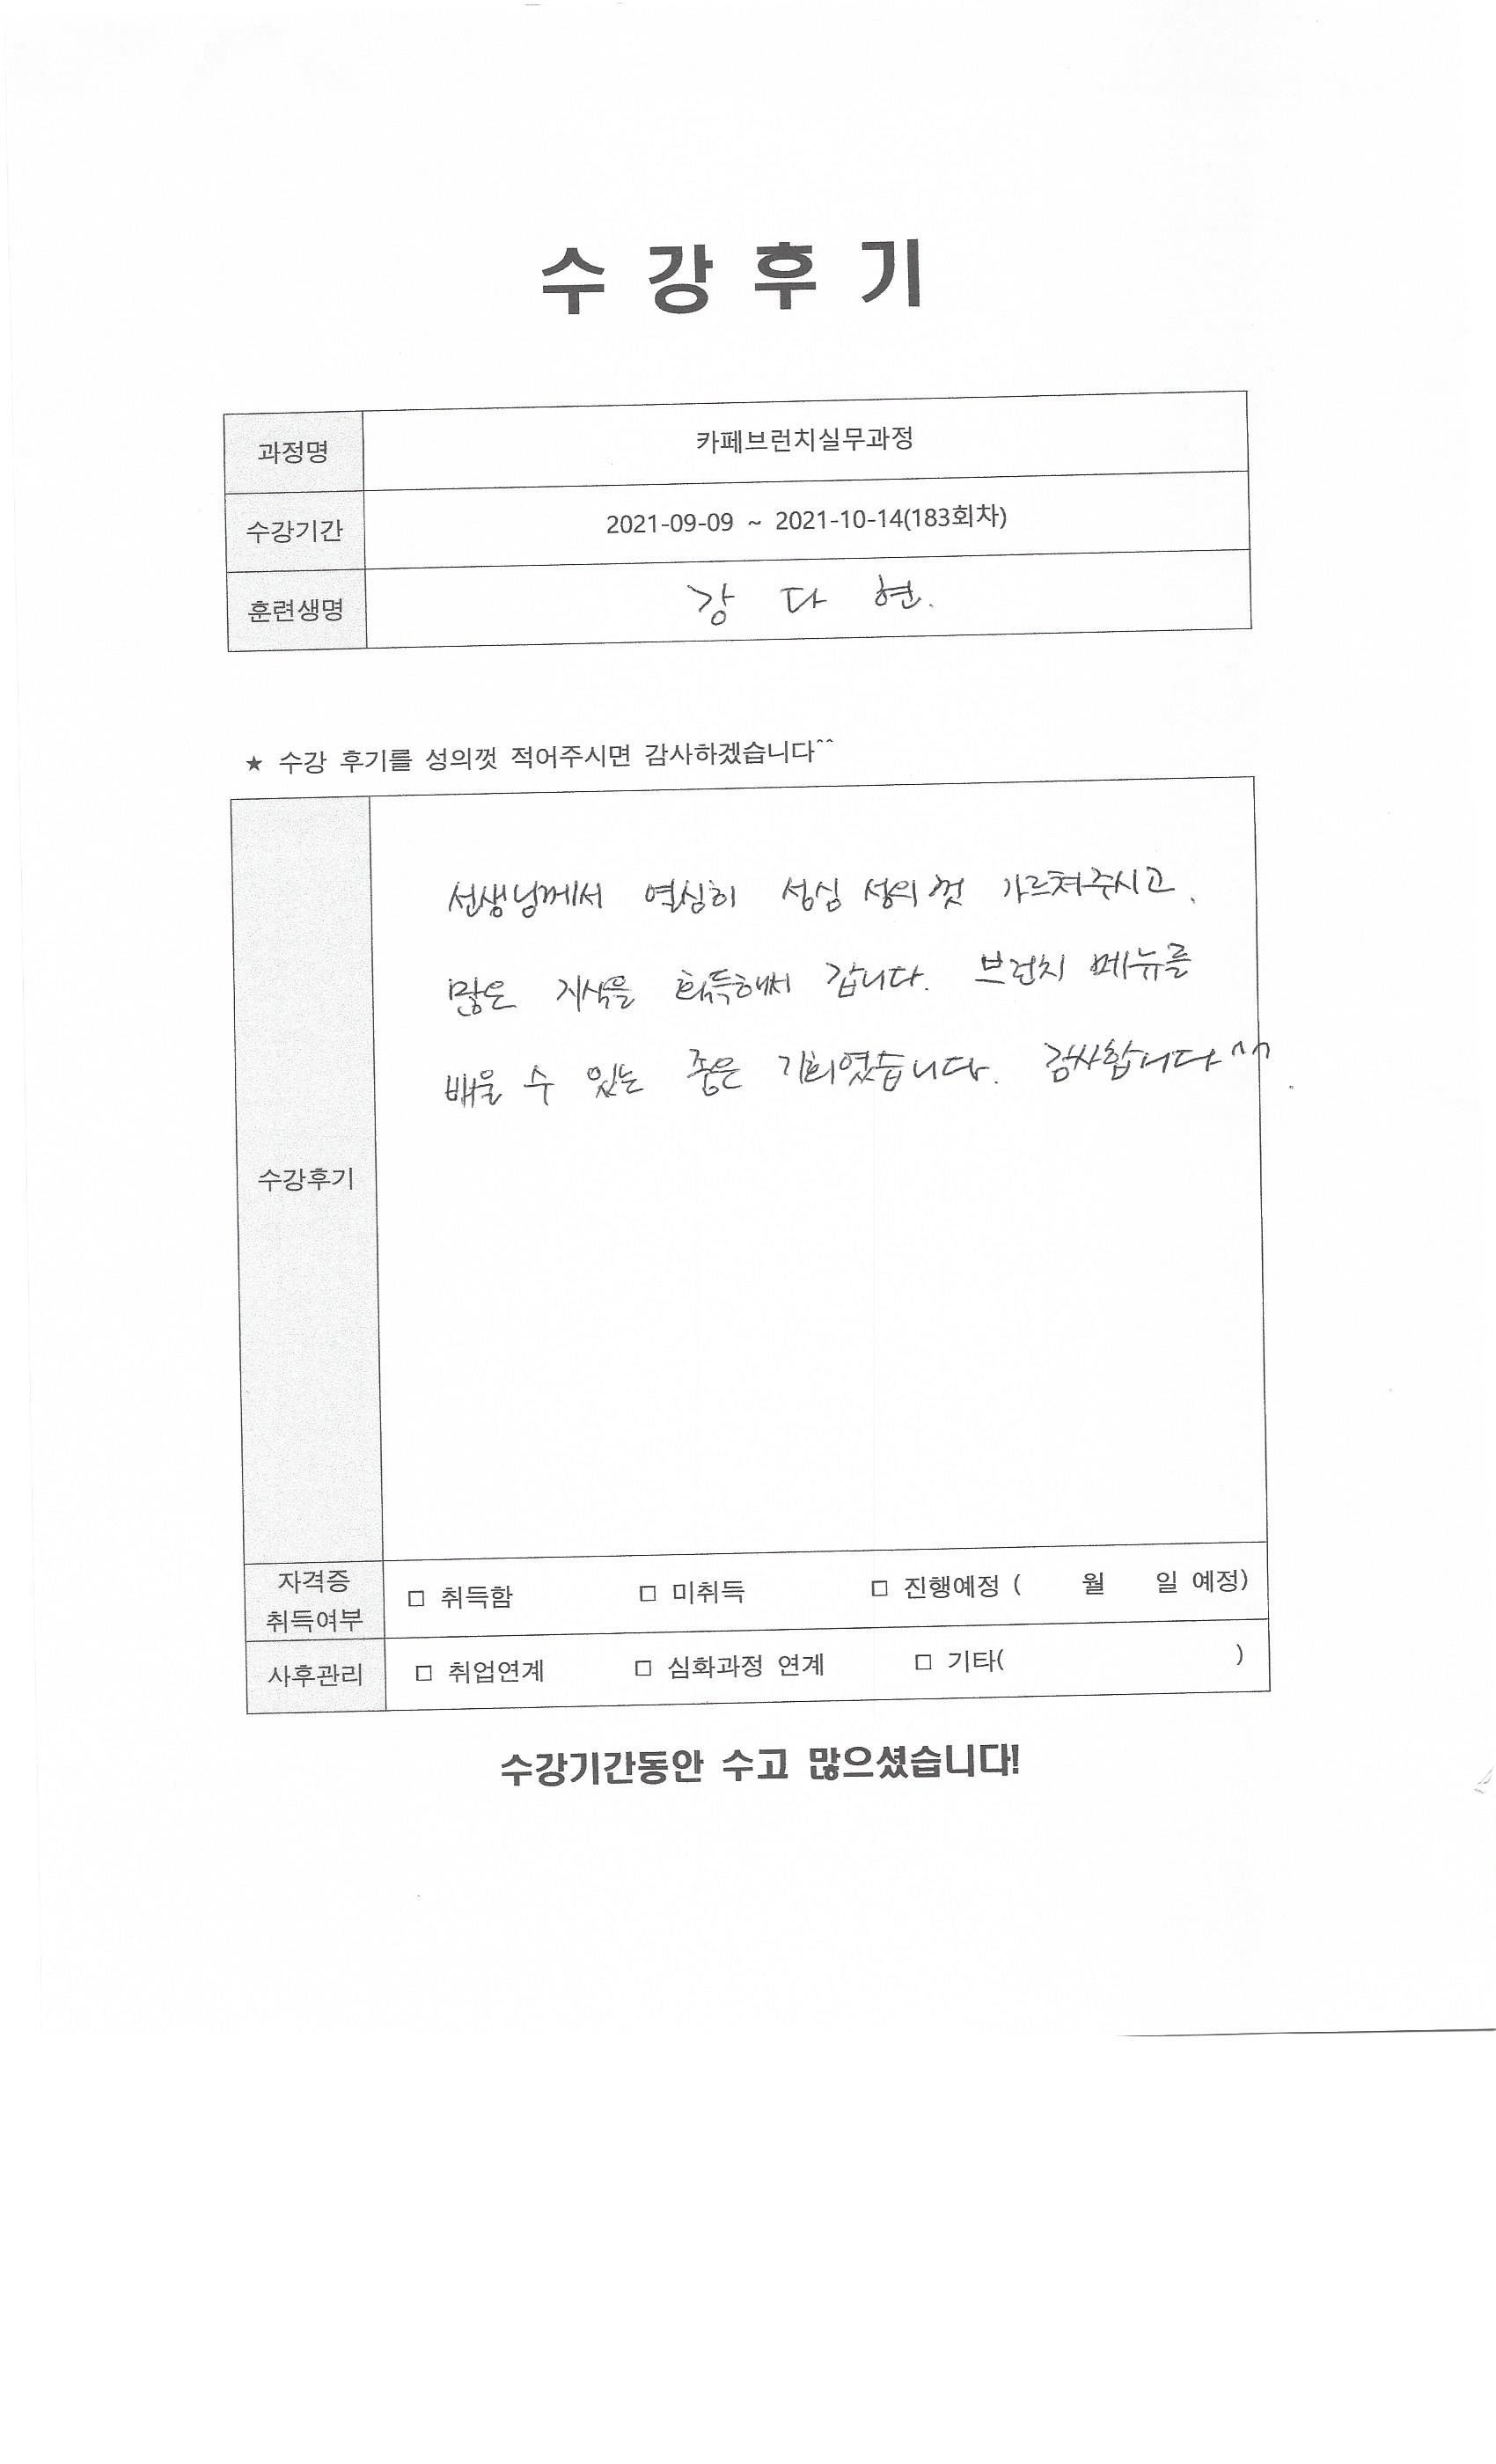 수 강 후 기
과정명 카페브런치실무과정
수강기간 2021-09-09 ~ 2021-10-14(183회차)
훈련생명 강 다 현.
★ 수강 후기를 성의껏 적어주시면 감사하겠습니다^^
선생님께서 열심히 성심 성의껏 가르쳐주시고,
많은 지식을 획득해서 갑니다. 브런치 메뉴를
배울 수 있는 좋은 기회였습니다. 감사합니다^^.
수강후기
자격증
취득여부 □ 취득함 □ 미취득 □ 진행예정 ( 월 일 예정)
사후관리 □ 취업연계 □ 심화과정 연계 □ 기타( )
수강기간동안 수고 많으셨습니다!